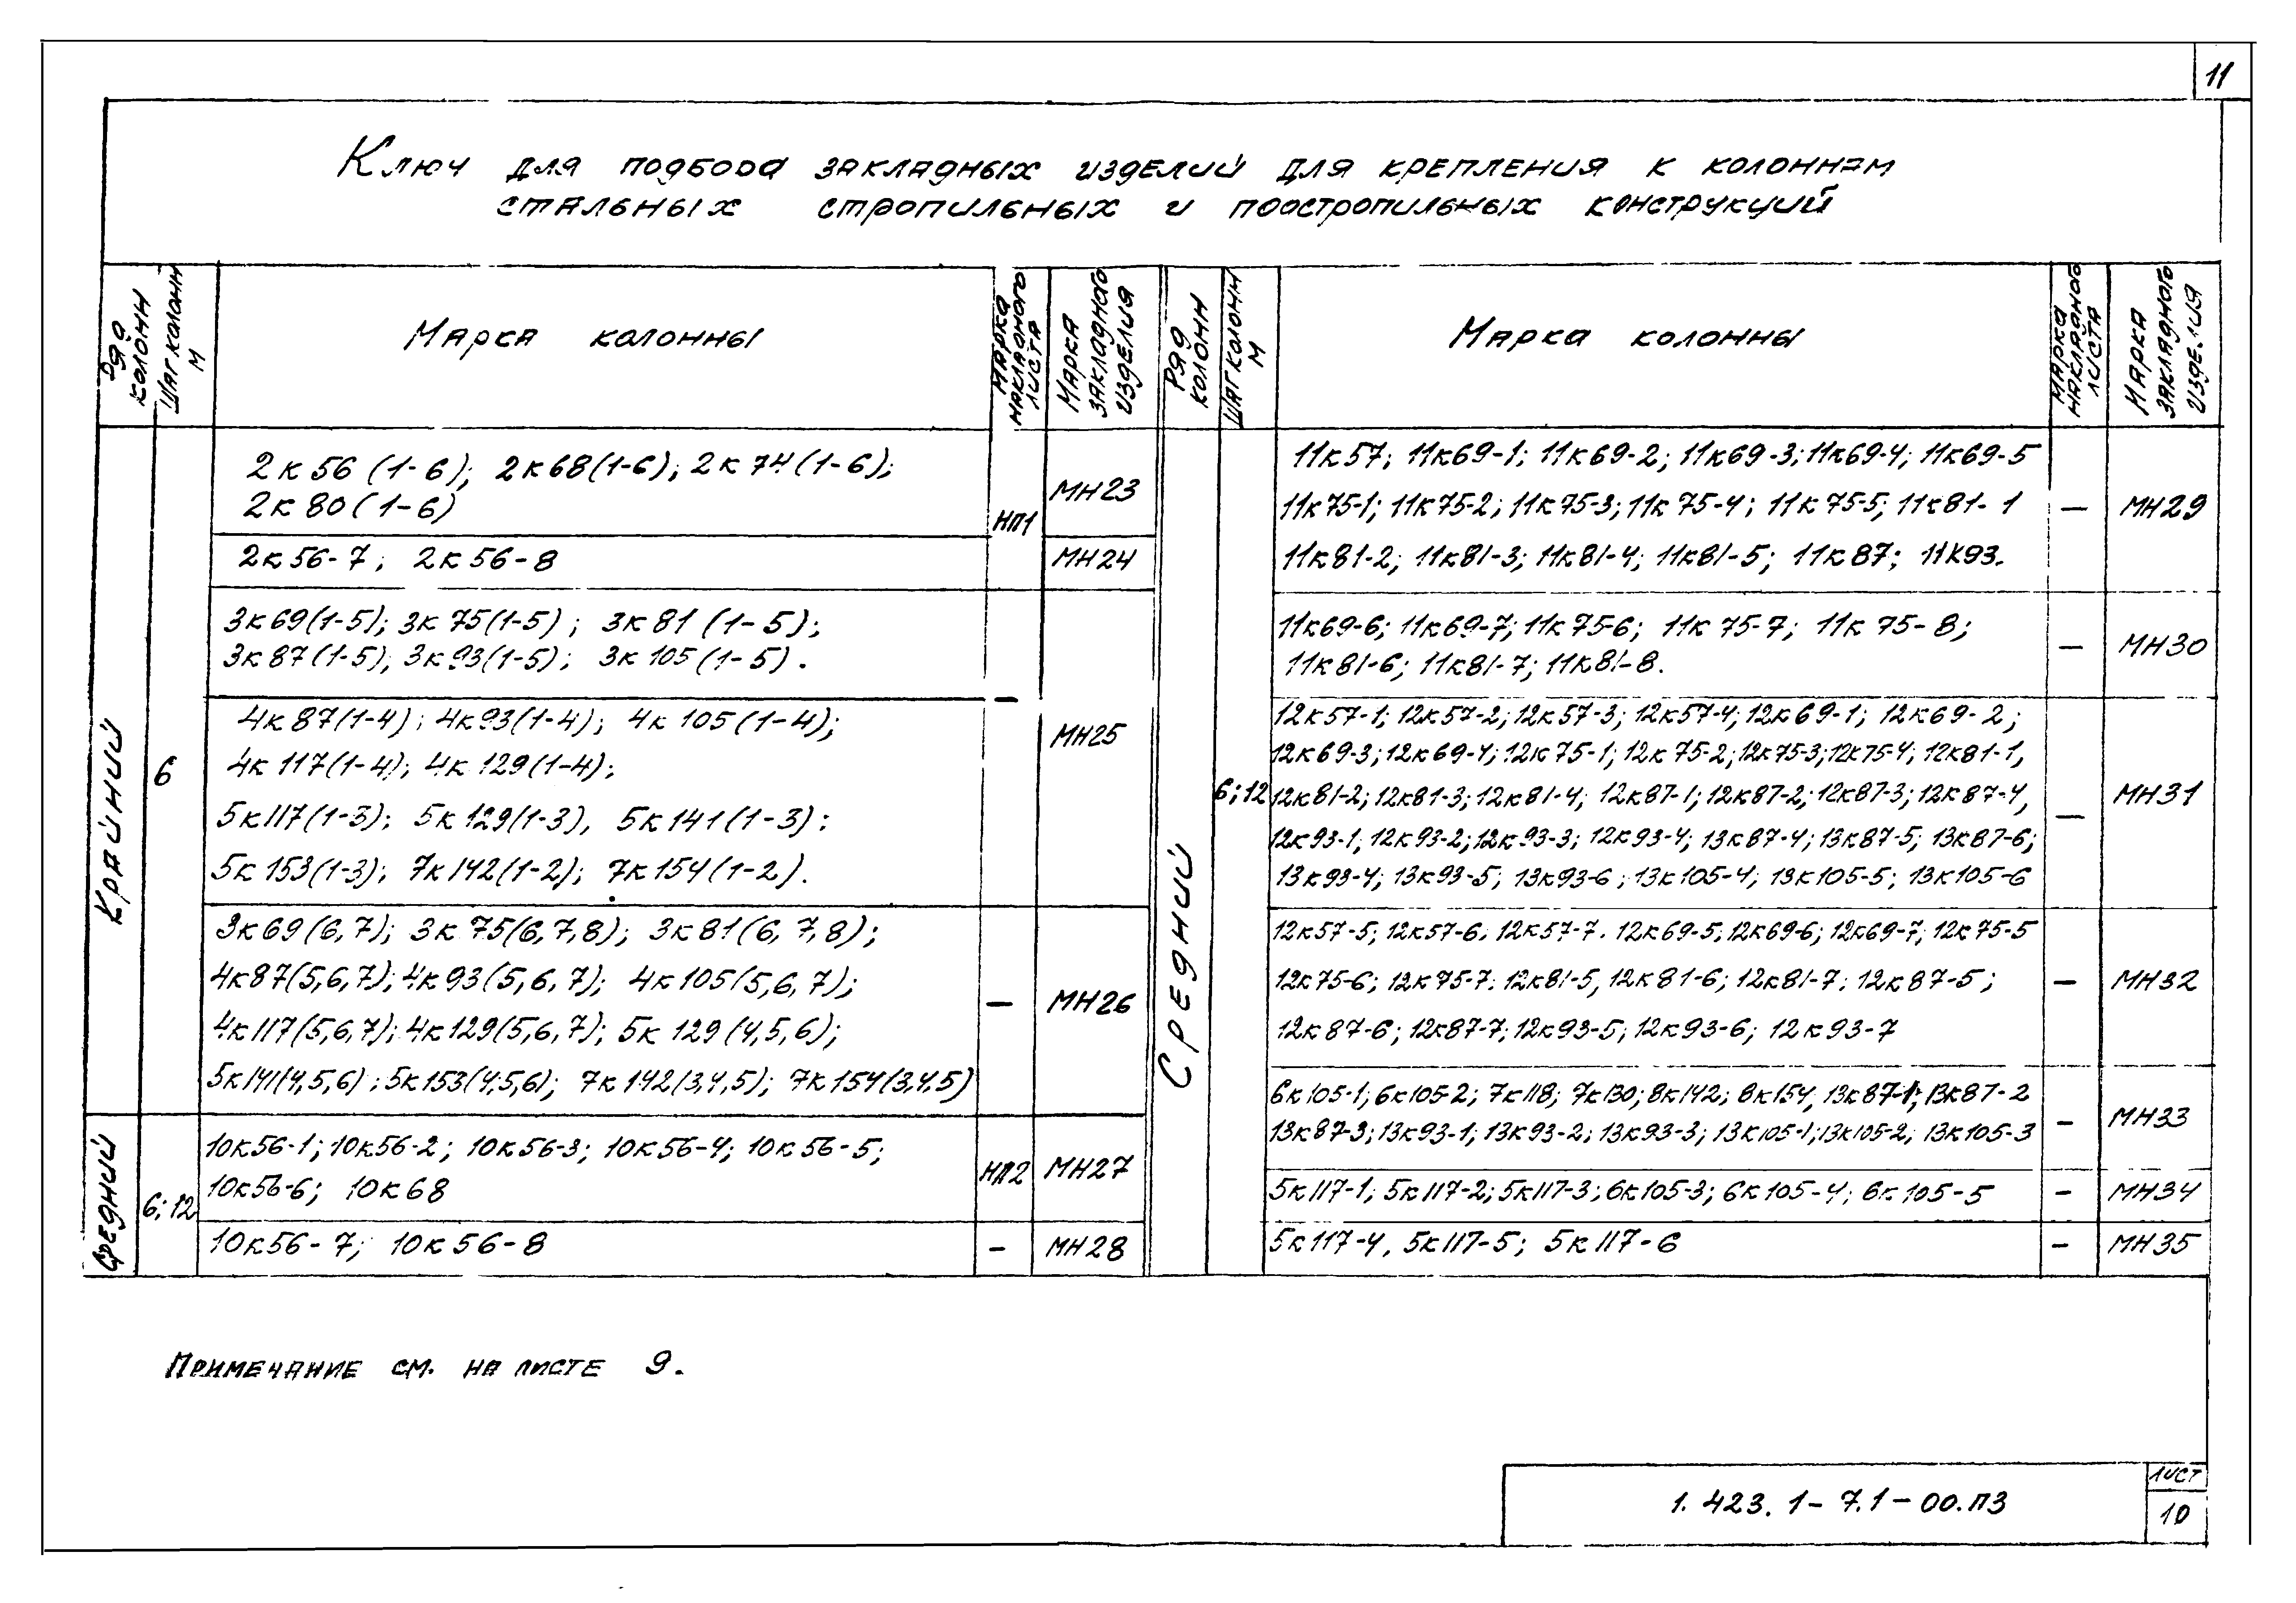 11
Ключ для подбора закладных изделий для крепления к колоннам
стальных стропильных и подстропильных конструкций
Ряд колонн
Шаг колонн М
Марка колонны
Марка накладного листа
Марка закладного изделия
Ряд колонн
Шаг колонн М
Марка колонны
Марка накладного листа
Марка закладного изделия
Крайний
6
2к56 (1-6); 2к68(1-6); 2к74(1-6);
2к80(1-6)
НП1
МН23
2к56-7; 2к56-8
МН24
3к69(1-5); 3к75(1-5); 3к81 (1-5);
3к87(1-5); 3к93(1-5); 3к105(1-5).
—
4к87(1-4); 4к93(1-4); 4к105(1-4);
4к117(1-4); 4к129(1-4);
5к117(1-3); 5к129(1-3), 5к141(1-3);
5к153(1-3); 7к142(1-2); 7к154(1-2).
МН25
3к69(6,7); 3к75(6,7,8); 3к81(6,7,8);
4к87(5,6,7); 4к93(5,6,7); 4к105(5,6,7);
4к117(5,6,7); 4к129(5,6,7); 5к129(4,5,6);
5к141(4,5,6); 5к153(4,5,6); 7к142(3,4,5); 7к154(3,4,5)
—
МН26
Средний
6; 12
10к56-1; 10к56-2; 10к56-3; 10к56-4; 10к56-5;
10к56-6; 10к68
НП2
МН27
10к56-7; 10к56-8
—
МН28
Средний
6; 12
11к57; 11к69-1; 11к69-2; 11к69-3; 11к69-4; 11к69-5
11к75-1; 11к75-2; 11к75-3; 11к75-4; 11к75-5; 11к81-1
11к81-2; 11к81-3; 11к81-4; 11к81-5; 11к87; 11к93.
—
МН29
11к69-6; 11к69-7; 11к75-6; 11к75-7; 11к75-8;
11к81-6; 11к81-7; 11к81-8.
—
МН30
12к57-1; 12к57-2; 12к57-3; 12к57-4; 12к69-1; 12к69-2;
12к69-3; 12к69-4; 12к75-1; 12к75-2; 12к75-3; 12к75-4; 12к81-1,
12к81-2; 12к81-3; 12к81-4; 12к87-1; 12к87-2; 12к87-3; 12к87-4,
12к93-1; 12к93-2; 12к93-3; 12к93-4; 13к87-4; 13к87-5; 13к87-6;
13к93-4; 13к93-5; 13к93-6; 13к105-4; 13к105-5; 13к105-6
—
МН31
12к57-5; 12к57-6; 12к57-7. 12к69-5; 12к69-6; 12к69-7; 12к75-5
12к75-6; 12к75-7. 12к81-5, 12к81-6; 12к81-7; 12к87-5;
12к87-6; 12к87-7; 12к93-5; 12к93-6; 12к93-7
—
МН32
6к105-1; 6к105-2; 7к118; 7к130; 8к142; 8к154, 13к87-1; 13к87-2
13к87-3; 13к93-1; 13к93-2; 13к93-3; 13к105-1; 13к105-2; 13к105-3
—
МН33
5к117-1; 5к117-2; 5к117-3; 6к105-3; 6к105-4; 6к105-5
—
МН34
5к117-4, 5к117-5; 5к117-6
—
МН35
Примечание см. на листе 9.
1.423.1-7.1-00.ПЗ
Лист
10